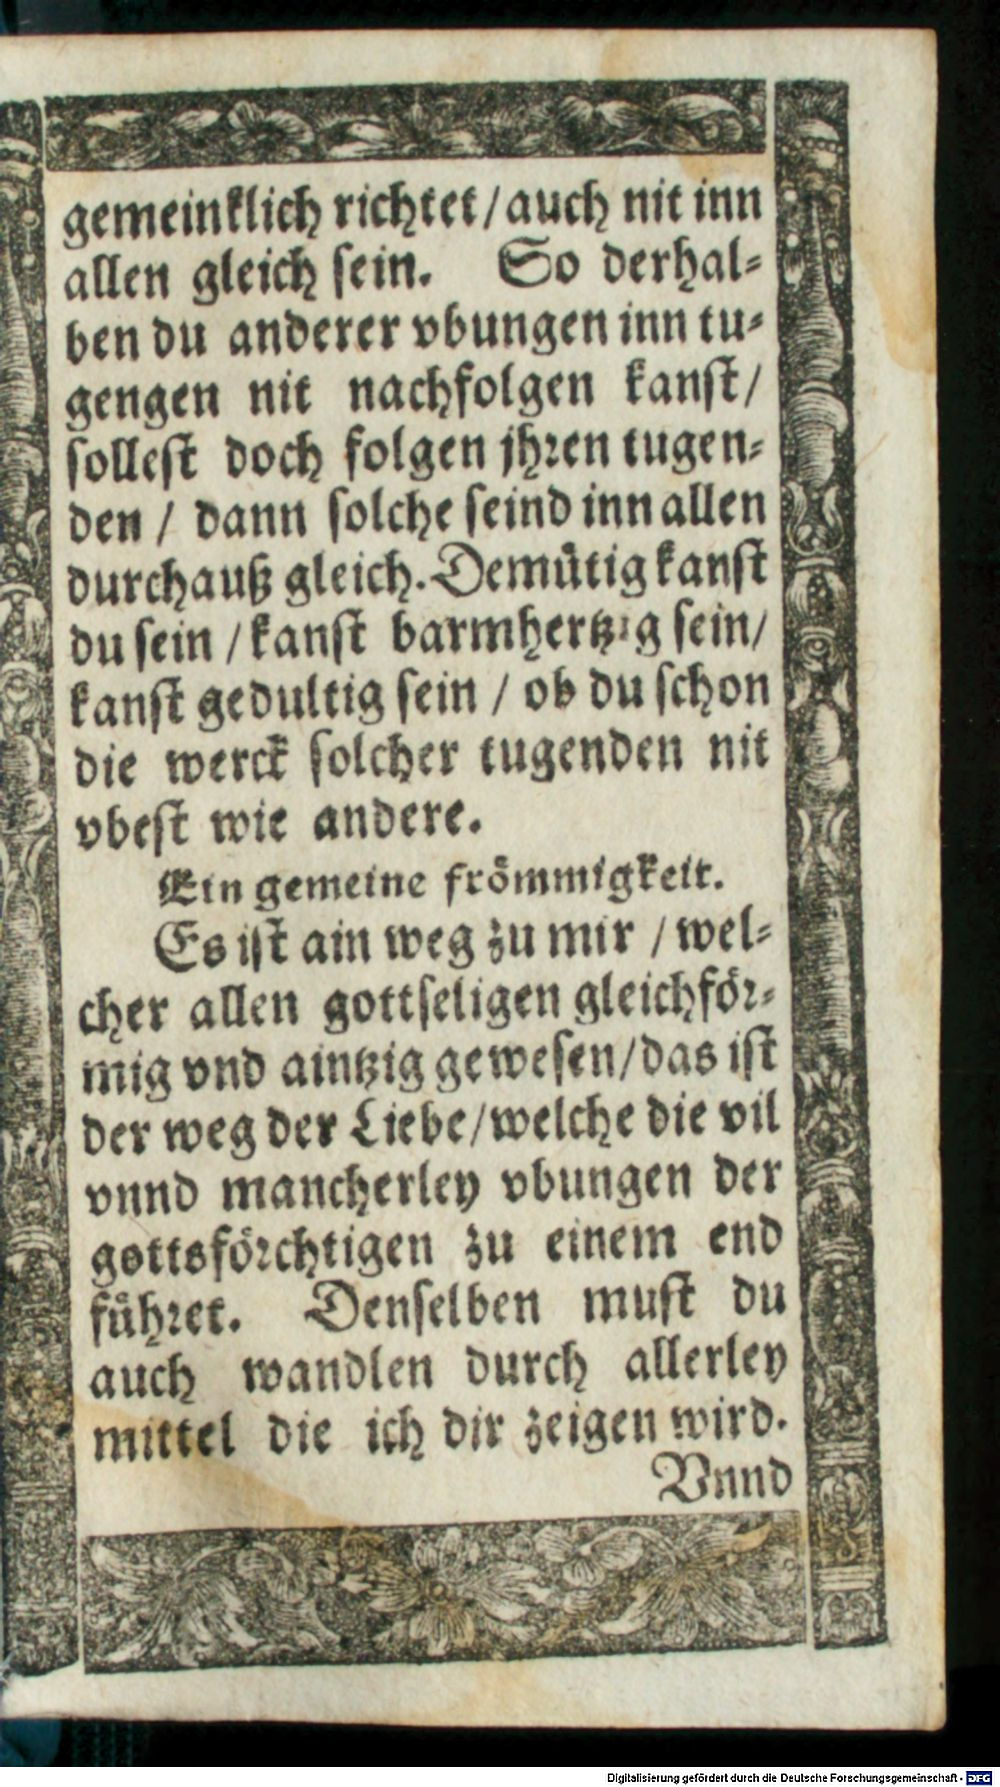 gemeinklich richtet/auch nit inn
allen gleich sein. So derhal-
ben du anderer vbungen inn tu-
gengen nit nachfolgen kanst/
sollest doch folgen jhren tugen-
den / dann solche seind inn allen
durchauß gleich. Demütig kanst
du sein / kanst barmhertzig sein/
kanst gedultig sein / ob du schon
die werck solcher tugenden nit
vbest wie andere.
Ein gemeine frömmigkeit.
Es ist ain weg zu mir / wel-
cher allen gottseligen gleichför-
mig vnd aintzig gewesen/das ist
der weg der Liebe/welche die vil
vnnd mancherley vbungen der
gottsförchtigen zu einem end
führet. Denselben must du
auch wandlen durch allerley
mittel die ich dir zeigen wird.
Vnnd
Digitalisierung gefördert durch die Deutsche Forschungsgemeinschaft - DFG